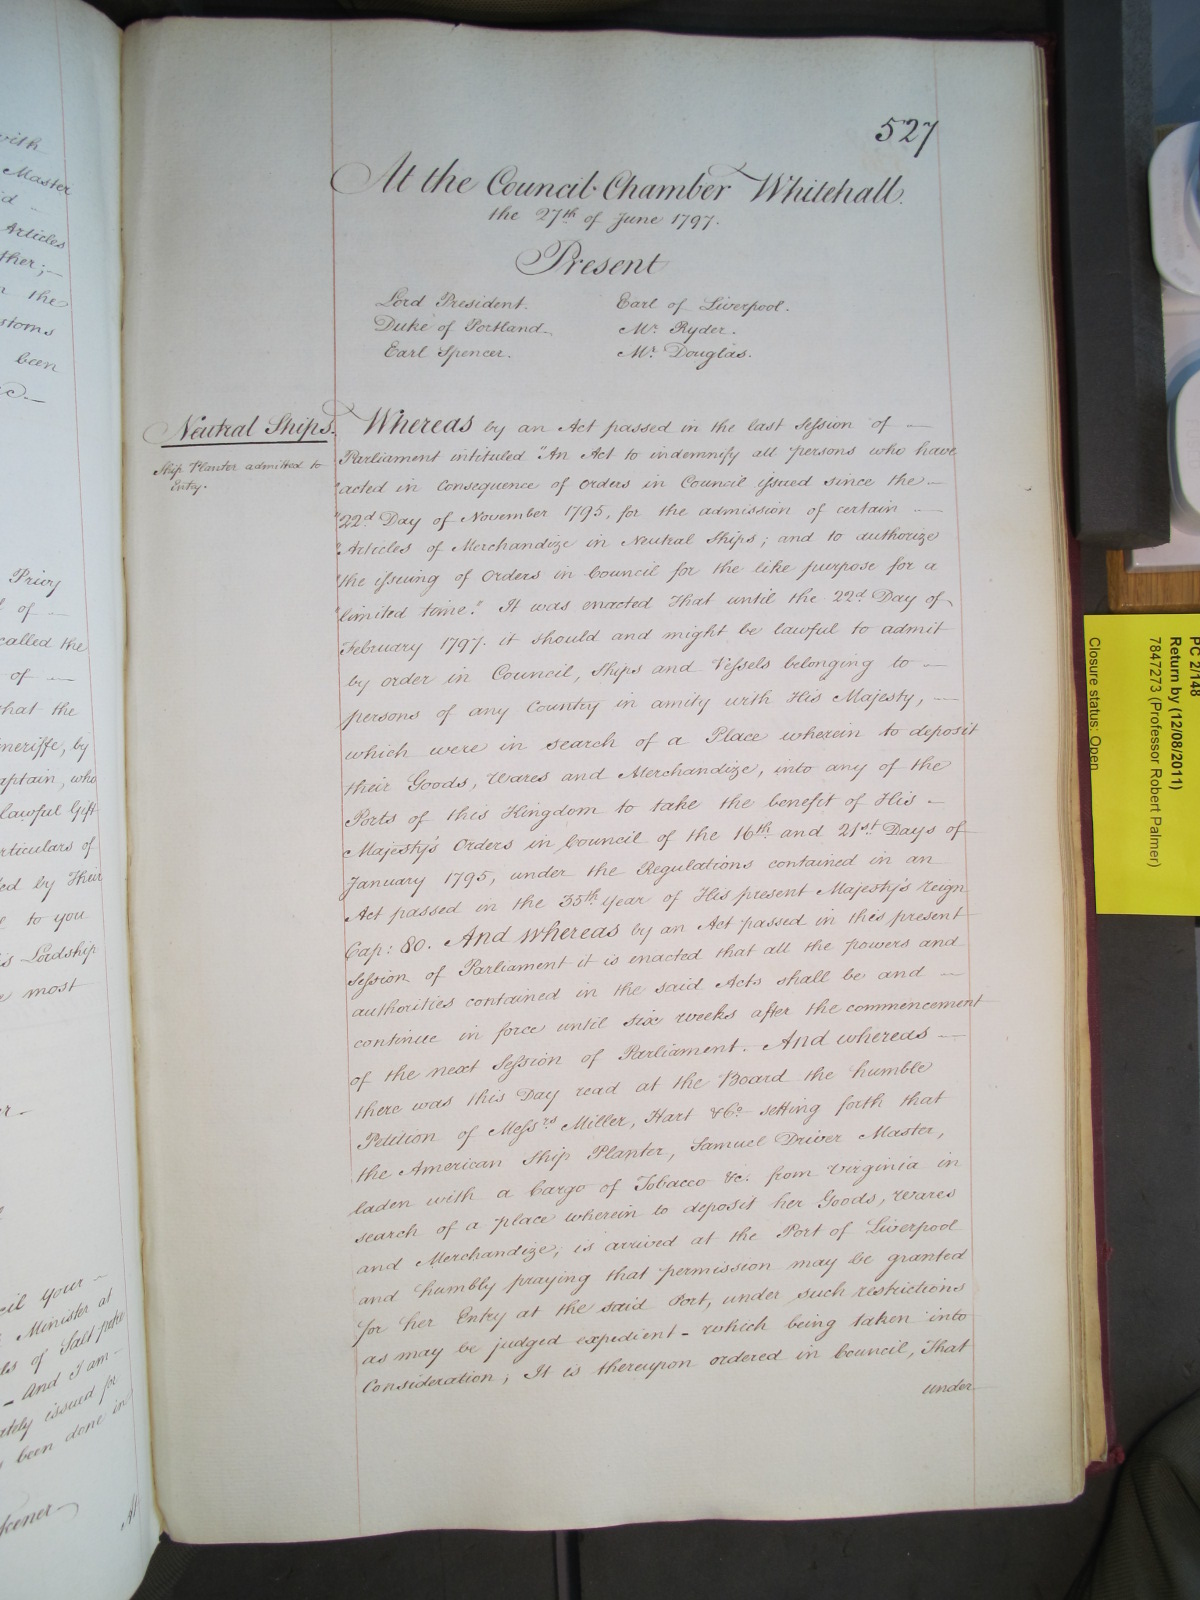 527
At the Council Chamber Whitehall.
the 27th of June 1797.
Present
Lord President. Earl of Liverpool.
Duke of Portland. Mr. Ryder.
Earl Spencer. Mr. Douglas.
Neutral Ships.
Ship Planter admitted to
Entry.
Whereas by an Act passed in the last Session of —
Parliament intituled "An Act to indemnify all persons who have
"acted in consequence of Orders in Council issued since the —
"22d Day of November 1795, for the admission of certain —
"Articles of Merchandize in Neutral Ships; and to authorize
"the issuing of Orders in Council for the like purpose for a
"limited time." It was enacted that until the 22d Day of
February 1797. it should and might be lawful to admit
by order in Council, Ships and Vessels belonging to —
persons of any Country in amity with His Majesty, —
which were in search of a Place wherein to deposit
their Goods, Wares and Merchandize, into any of the
Ports of this Kingdom to take the benefit of His —
Majesty's Orders in Council of the 16th and 21st Days of
January 1795, under the Regulations contained in an
Act passed in the 35th year of His present Majesty's reign
Cap: 80. And whereas by an Act passed in this present
Session of Parliament it is enacted that all the powers and
authorities contained in the said Acts shall be and —
continue in force until six weeks after the commencement
of the next Session of Parliament. And whereas —
there was this Day read at the Board the humble
Petition of Messrs Miller, Hart &Co setting forth that
the American Ship Planter, Samuel Driver Master,
laden with a Cargo of Tobacco &c. from Virginia in
search of a place wherein to deposit her Goods, Wares
and Merchandize, is arrived at the Port of Liverpool
and humbly praying that permission may be granted
for her Entry at the said Port, under such restrictions
as may be judged expedient - which being taken into
Consideration; It is thereupon ordered in Council, That
under
with
Master
Articles
ther;—
the
stoms
been
Privy
of —
called the
of —
hat the
neriffe, by
aptain, who
lawful Gift
rticulars of
ed by Their
to you
is Lordship
most
cil your —
Minister at
of Salt petre
- And I am —
ately issued for
been done in
PC 2/148
Return by (12/08/2011)
7847273 (Professor Robert Palmer)
Closure status: Open